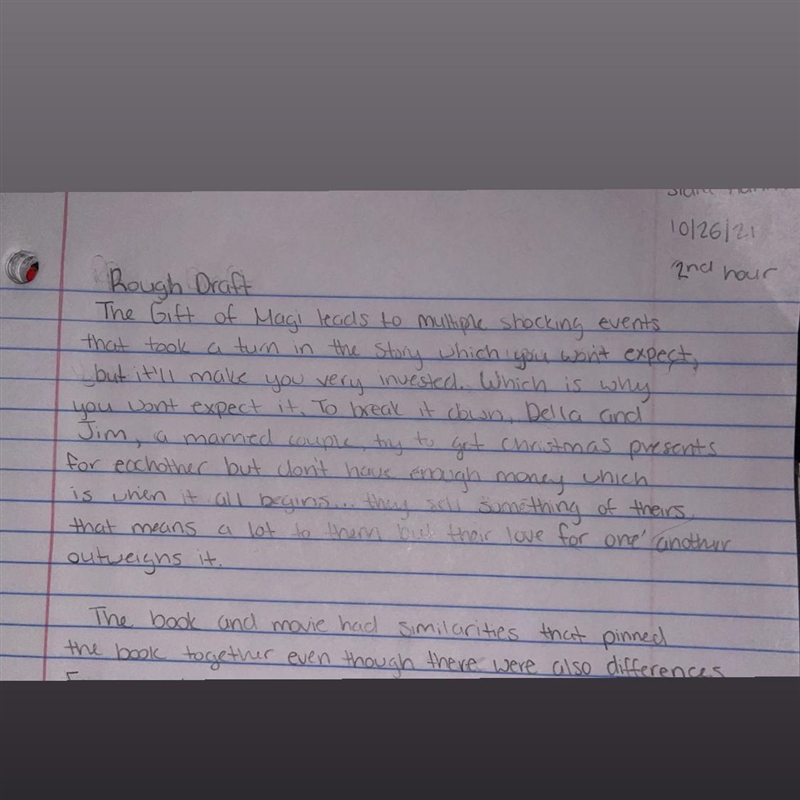 10/26/21
2nd hour
Rough Draft
The Gift of Magi leads to multiple shocking events
that took a turn in the story which you won't expect,
but it'll make you very invested. Which is why
you wont expect it. To break it down, Della and
Jim, a married couple, try to get christmas presents
for eachother but don't have enough money which
is when it all begins... they sell something of theirs
that means a lot to them but their love for one another
outweighs it.
The book and movie had similarities that pinned
the book together even though there were also differences